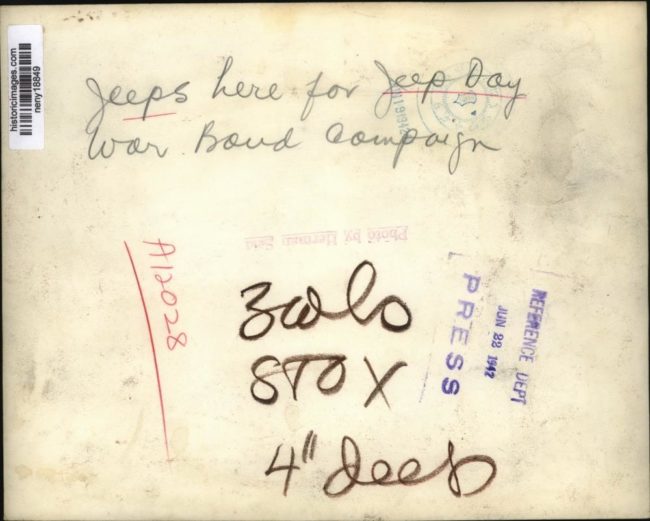 historicimages.com
neny18849
Jeeps here for Jeep Day
War Bond Campaign
Photo by Herman
A12028
3 cols
STOX
4" deep
REFERENCE DEPT
JUN 22 1942
PRESS